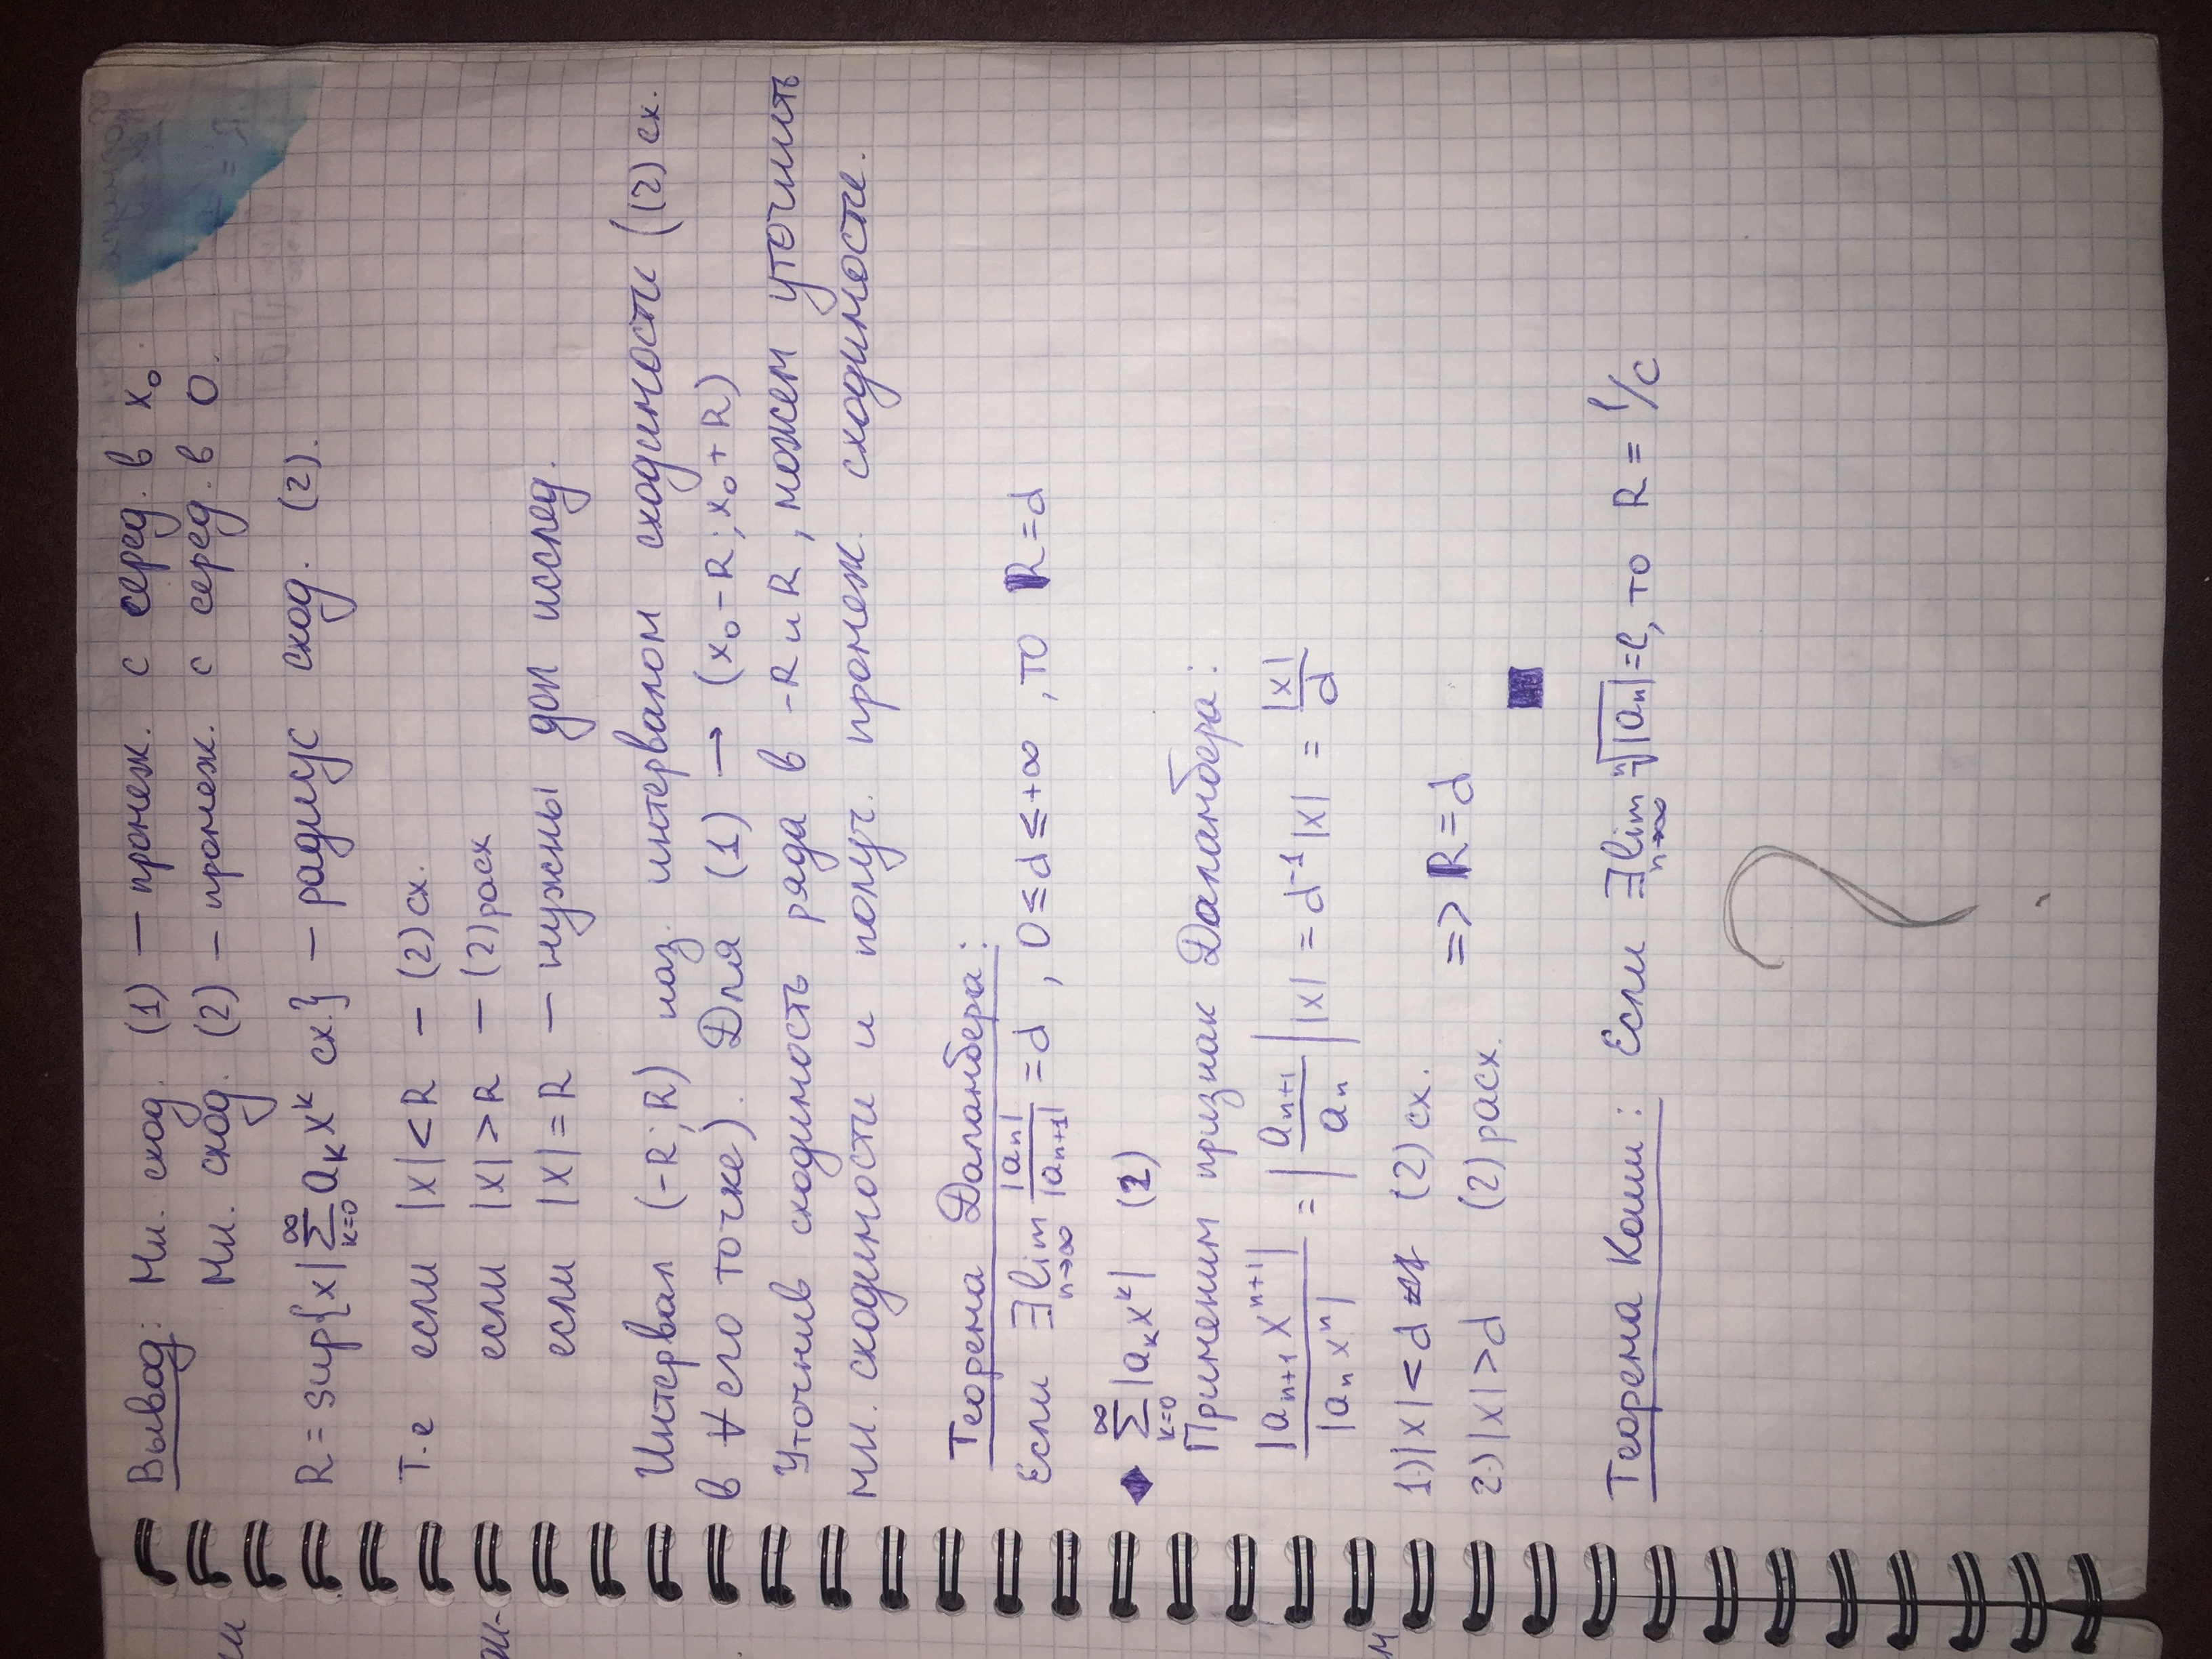 Вывод: Мн. сход. (1) — промеж. с серед. в x₀.
Мн. сход. (2) – промеж. с серед. в 0.
R = sup{x | ∑_{k=0}^{∞} aₖxᵏ сх.} – радиус сход. (2).
Т.е если |x| < R – (2) сх.
если |x| > R – (2) расх
если |x| = R – нужны доп исслед.
Интервал (-R; R) наз. интервалом сходимости ((2) сх.
в ∀ его точке). Для (1) → (x₀ – R; x₀ + R)
Уточнив сходимость ряда в -R и R, можем уточнить
мн. сходимости и получ. промеж. сходимости.
Теорема Даламбера:
Если ∃ lim_{n→∞} |aₙ|/|aₙ₊₁| = d, 0 ≤ d ≤ +∞, то R = d
◆ ∑_{k=0}^{∞} |aₖxᵏ| (2)
Применим признак Даламбера:
|aₙ₊₁ xⁿ⁺¹|/|aₙ xⁿ| = |aₙ₊₁/aₙ| |x| = d⁻¹ |x| = |x|/d
1.) |x| < d (2) сх.
=> R = d
2.) |x| > d (2) расх.
■
Теорема Коши: Если ∃ lim_{n→∞} ⁿ√|aₙ| = C, то R = 1/C
?